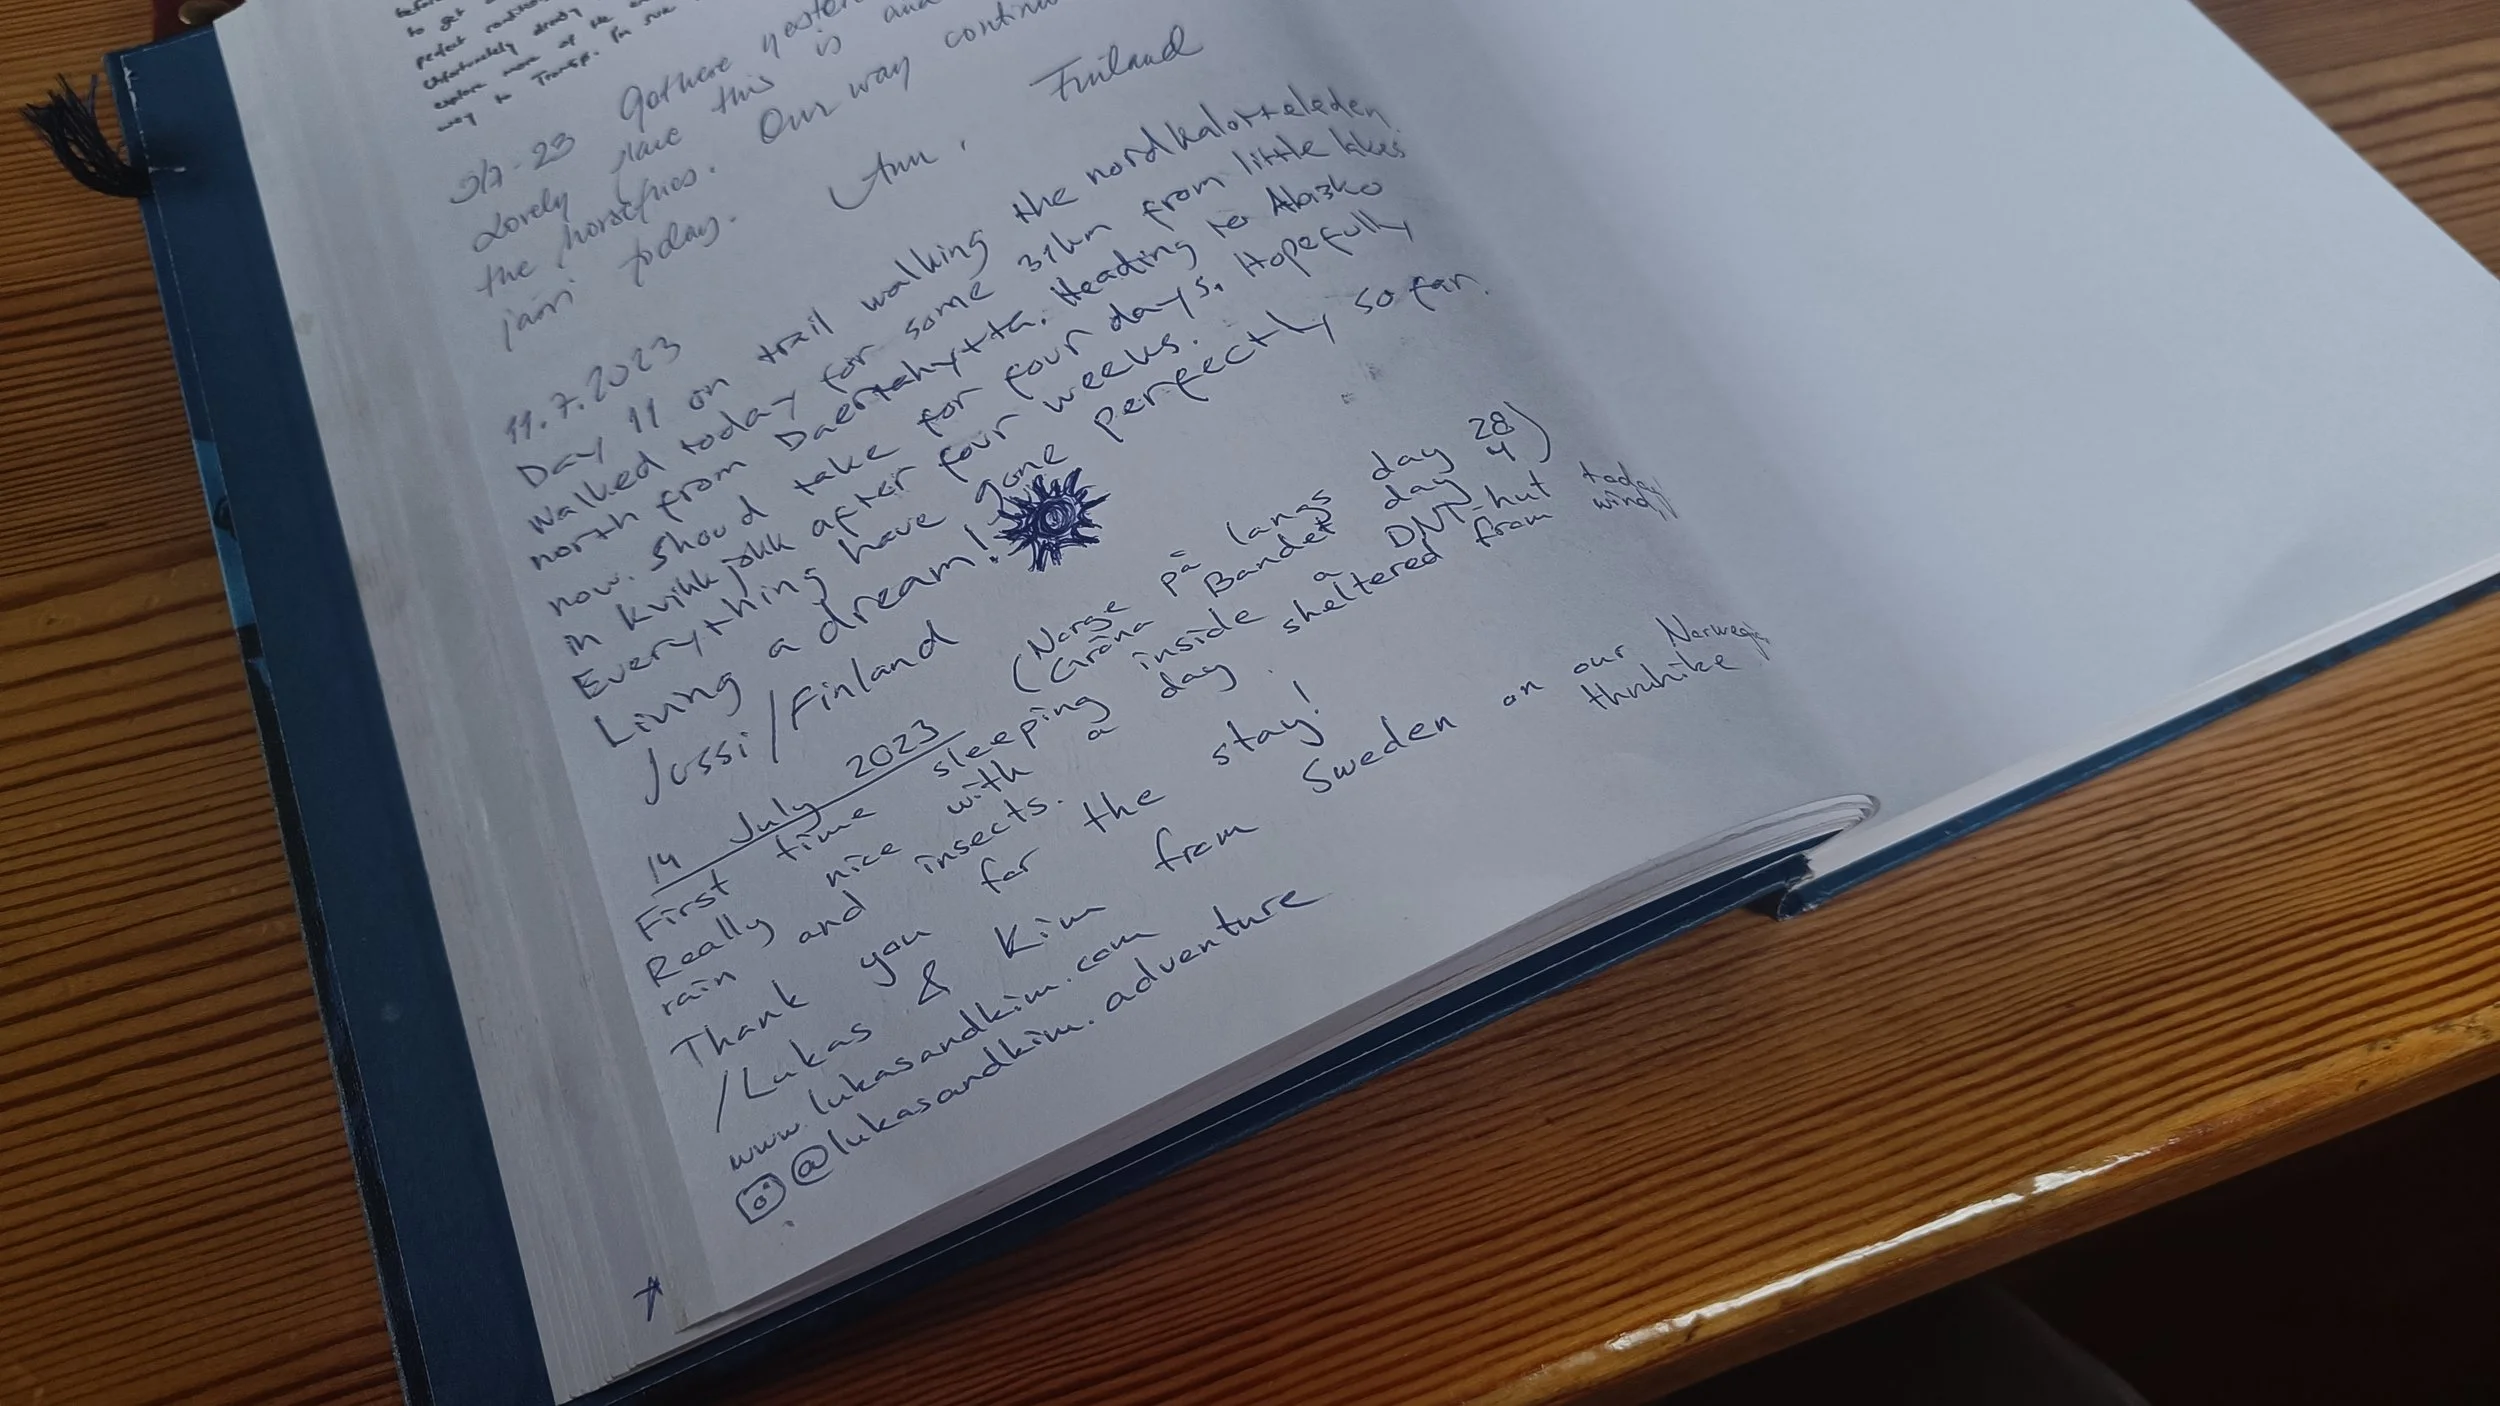 to get
perfect
Unfortunately already
explore more of the
way to Transp. I'm sure
3/7-23 Got here
Lovely place this is and
the horseflies. Our way
jatri today. Ann. Finland
11.7.2023
Day 11 on trail walking the nordkalotteleden
Walked today for some 31km from little lakes
north from Daertahytta. Heading to Abisko
now. Shoud take for four days. Hopefully
in kvikkjokk after four weeks.
Everything have gone perfectly so far.
Living a dream!
Jussi/Finland
14 July 2023 (Norge på langs day 28
Gröna Bandet day 4)
First time sleeping inside a DNT-hut today
Really nice with a day sheltered from wind,
rain and insects.
Thank you for the stay!
/Lukas & Kim from Sweden on our Norwegian
thruhike
www.lukasandkim.com
@lukasandkim.adventure